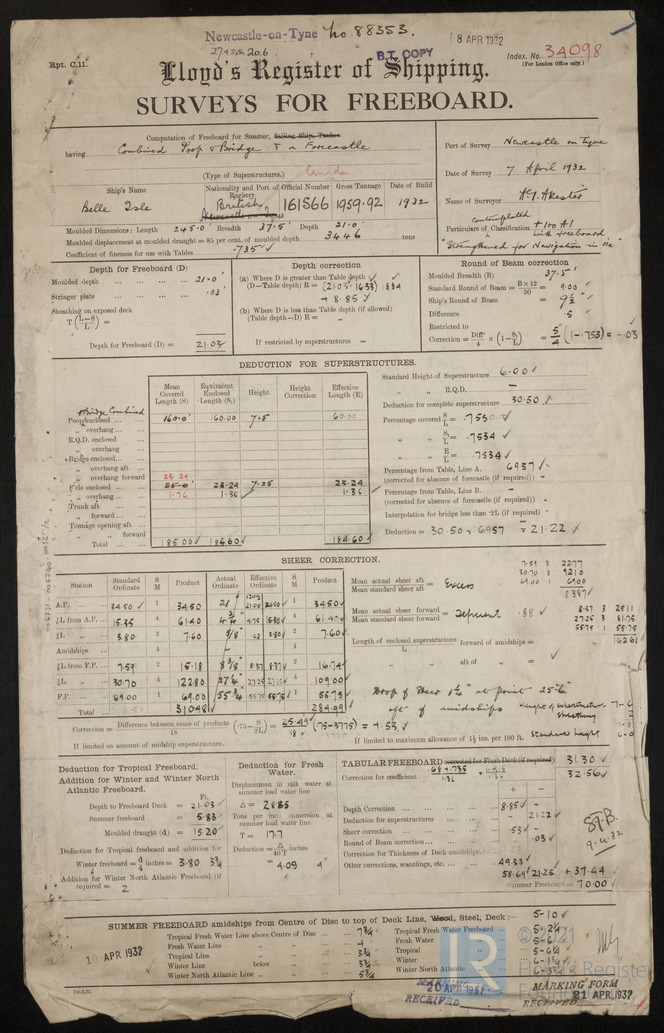 Newcastle-on-Tyne No 88353.
8 APR 1932
B.T. COPY
Index. No. 34098
(For London Office only.)
Rpt. C.11.
Lloyd's Register of Shipping.
SURVEYS FOR FREEBOARD.
Computation of Freeboard for Steamer, Sailing Ship, Tanker
having Combined Poop & Bridge & a Forecastle
(Type of Superstructures.)
Port of Survey Newcastle on Tyne
Date of Survey 7 April 1932
Name of Surveyor
Particulars of Classification contemplated +100A1
with freeboard
"Strengthened for Navigation in Ice"
Ship's Name Nationality and Port of Registry Official Number Gross Tonnage Date of Build
Belle Isle British 161566 1959.92 1932
Moulded Dimensions: Length 245.0' Breadth 37.5' Depth 21.0'
Moulded displacement at moulded draught = 85 per cent. of moulded depth 3446 tons
Coefficient of fineness for use with Tables .735
Depth for Freeboard (D)
Moulded depth 21.0'
Stringer plate .03'
Sheathing on exposed deck
T (L-S/L) =
Depth for Freeboard (D) = 21.03
Depth correction
(a) Where D is greater than Table depth
(D—Table depth) R = (21.03-16.33) 1.884
= + 8.85
(b) Where D is less than Table depth (if allowed)
(Table depth—D) R = -
If restricted by superstructures -
Round of Beam correction
Moulded Breadth (B) 37.5'
Standard Round of Beam = B×12/50 = 9.00
Ship's Round of Beam = 9½
Difference .5
Restricted to
Correction = Diff/4 × (1 - S/L) = .5/4 (1-.753) = -.03
DEDUCTION FOR SUPERSTRUCTURES.
Mean Covered Length (S) Equivalent Enclosed Length (S₁) Height Height Correction Effective Length (E)
& Bridge Combined
Poop enclosed 160.0' 160.00 7.5 160.00
" overhang
R.Q.D. enclosed
" overhang
Bridge enclosed
" overhang aft
" overhang forward
F'cle enclosed 25.0' 23.24 23.24 7.25 23.24
" overhang 1.76 1.36 1.36
Trunk aft
" forward
Tonnage opening aft
" " forward
Total 185.00 184.60 184.60
Standard Height of Superstructure 6.00
" " R.Q.D. -
Deduction for complete superstructure 30.50
Percentage covered S/L = .7530
" " S₁/L = .7534
" " E/L = .7534
Percentage from Table, Line A. 6957
(corrected for absence of forecastle (if required)) -
Percentage from Table, Line B. -
(corrected for absence of forecastle (if required)) -
Interpolation for bridge less than ·2L (if required) -
Deduction = 30.50 x .6957 = 21.22
SHEER CORRECTION.
Station Standard Ordinate S M Product Actual Ordinate Effective Ordinate S M Product
A.P. 34.50 1 34.50 21 34.50 1 34.50
⅙L from A.P. 15.35 4 61.40 4 61.40
⅓L " 3.80 2 7.60 5/8" 3.80 2 7.60
Amidships 4 - 4
⅓L from F.P. 7.59 2 15.18 8 3/8" 8.37 8.37 2 16.74
⅙L " 30.70 4 122.80 27¼ 27.25 27.25 4 109.00
F.P. 69.00 1 69.00 55¾ 55.75 55.75 1 55.75
Total 310.48 284.99
Mean actual sheer aft
Mean standard sheer aft = Excess
Mean actual sheer forward
Mean standard sheer forward = Deficient .88
Length of enclosed superstructure forward of amidships =
" " aft of " =
7.59 3 2277
30.70 3 9210
69.00 1 6900
18387
8.37 3 2511
27.25 3 8175
55.75 1 5575
16261
Drop of Sheer 1½" at point 25-6"
aft of amidships
Height of superstructure 7-6
Sheathing 2
7-8
Standard height 6-0
Correction = Difference between sums of products/18 (·75 - S/2L) = 25.49/18 (.75-.3775) = +.53
If limited on account of midship superstructure.
If limited to maximum allowance of 1½ ins. per 100 ft.
Deduction for Tropical Freeboard.
Addition for Winter and Winter North Atlantic Freeboard.
Ft.
Depth to Freeboard Deck = 21.03
Summer freeboard = 5.83
Moulded draught (d) = 15.20
Deduction for Tropical freeboard and addition for
Winter freeboard = d/4 inches = 3.80 3¾
Addition for Winter North Atlantic Freeboard (if required) = 2
Deduction for Fresh Water.
Displacement in salt water at summer load water line
Δ = 2885
Tons per inch immersion at summer load water line
T = 17.7
Deduction = Δ/40 T inches
= 4.09 4"
TABULAR FREEBOARD corrected for Flush Deck (if required) 31.30
Correction for coefficient .68+.735/1.36 32.56
+ -
Depth Correction 8.85 -
Deduction for superstructures - 21.22
Sheer correction .53 -
Round of Beam correction - .03
Correction for Thickness of Deck amidships
Other corrections, scantlings, etc. 49.31
58.69 21.25 +37.44
Summer Freeboard = 70.00
9.4.32
SUMMER FREEBOARD amidships from Centre of Disc to top of Deck Line, Wood, Steel, Deck:— 5-10
Tropical Fresh Water Line above Centre of Disc 7¾
Fresh Water Line " " 4
Tropical Line " " 3¾
Winter Line below " 3¾
Winter North Atlantic Line " " 5¾
Tropical Fresh Water Freeboard 5-2¼
Fresh Water " 5-6
Tropical " 5-6¼
Winter " 6-1¾
Winter North Atlantic " 6-3¾
10 APR 1932
20 APR 1932
RECEIVED
MARKING FORM
21 APR. 1932
RECEIVED
LR
© 2021
Lloyd's Register
Foundation